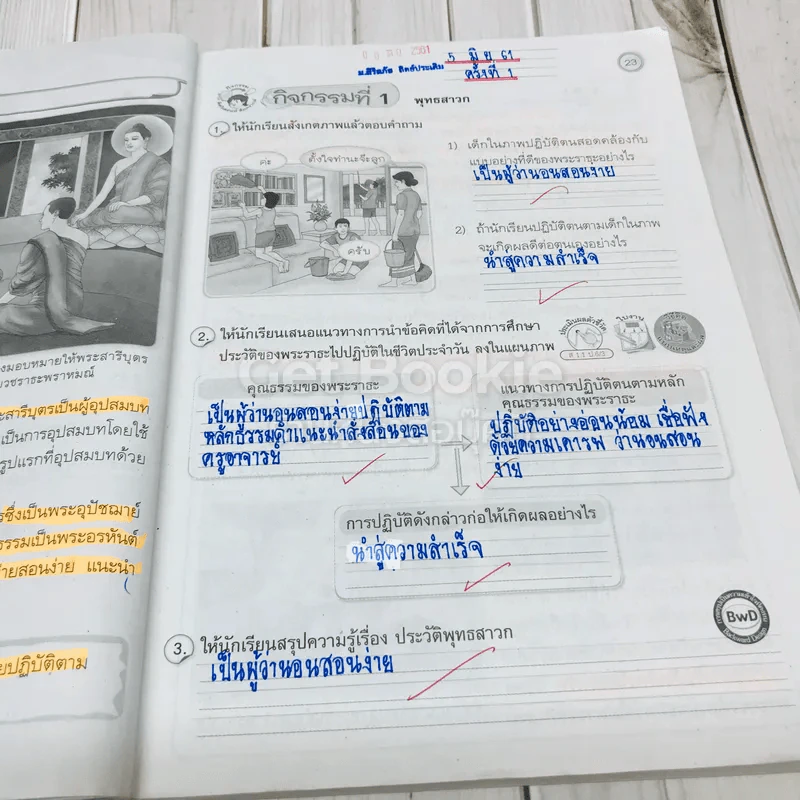 มอบหมายให้พระสารีบุตร
วชราธะพราหมณ์
ะสารีบุตรเป็นผู้อุปสมบท
เป็นการอุปสมบทโดยใช้
รูปแรกที่อุปสมบทด้วย
รซึ่งเป็นพระอุปัชฌาย์
ธรรมเป็นพระอรหันต์
ายสอนง่าย แนะนำ
ยปฏิบัติตาม
5 มิ.ย. 61
ครั้งที่ 1
23
กิจกรรมที่ 1 พุทธสาวก
1. ให้นักเรียนสังเกตภาพแล้วตอบคำถาม
ค่ะ
ตั้งใจทำนะจ๊ะลูก
ครับ
1) เด็กในภาพปฏิบัติตนสอดคล้องกับ
แบบอย่างที่ดีของพระราธะอย่างไร
เป็นผู้ว่านอนสอนง่าย
2) ถ้านักเรียนปฏิบัติตนตามเด็กในภาพ
จะเกิดผลดีต่อตนเองอย่างไร
นำสู่ความสำเร็จ
2. ให้นักเรียนเสนอแนวทางการนำข้อคิดที่ได้จากการศึกษา
ประวัติของพระราธะไปปฏิบัติในชีวิตประจำวัน ลงในแผนภาพ
ใบงาน
Get Bookie
คุณธรรมของพระราธะ
เป็นผู้ว่านอนสอนง่ายปฏิบัติตาม
หลักธรรมคำแนะนำสั่งสอนของ
ครูอาจารย์
แนวทางการปฏิบัติตนตามหลัก
คุณธรรมของพระราธะ
ปฏิบัติอย่างอ่อนน้อม เชื่อฟัง
ด้วยความเคารพ ว่านอนสอน
ง่าย
การปฏิบัติดังกล่าวก่อให้เกิดผลอย่างไร
นำสู่ความสำเร็จ
BwD
Backward Design
3. ให้นักเรียนสรุปความรู้เรื่อง ประวัติพุทธสาวก
เป็นผู้ว่านอนสอนง่าย